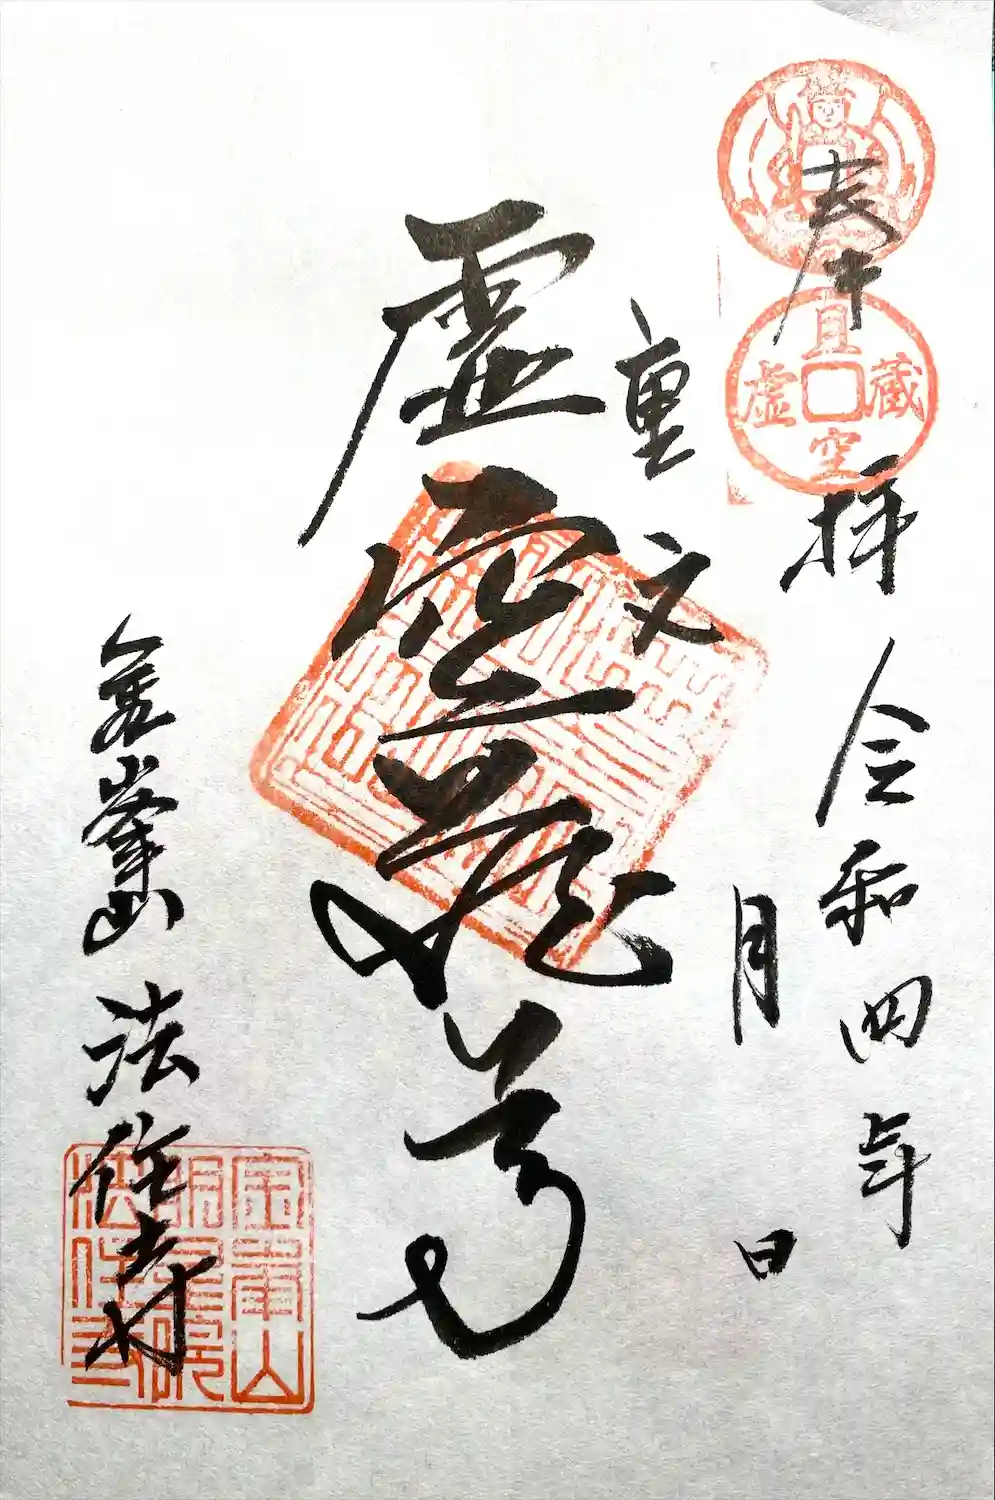 奉拝
令和四年
月日
且
虚 蔵
空
重文
虚空蔵尊
金峯山 法住寺
金峯山